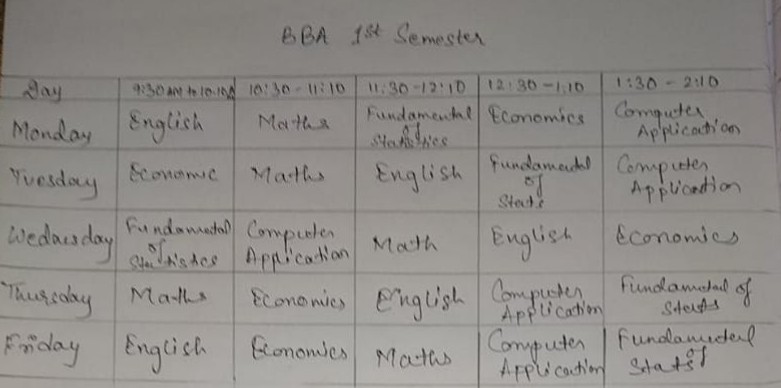 BBA 1st Semester
Day 9:30 AM to 10:10 10:30 - 11:10 11:30 - 12:10 12:30 - 1:10 1:30 - 2:10
Monday English Maths Fundamental of Statistics Economics Computer Application
Tuesday Economic Maths English Fundamental of Stats Computer Application
Wednesday Fundamental of Statistics Computer Application Math English Economics
Thursday Maths Economics English Computer Application Fundamental of Stats
Friday English Economics Maths Computer Application Fundamental of Stats